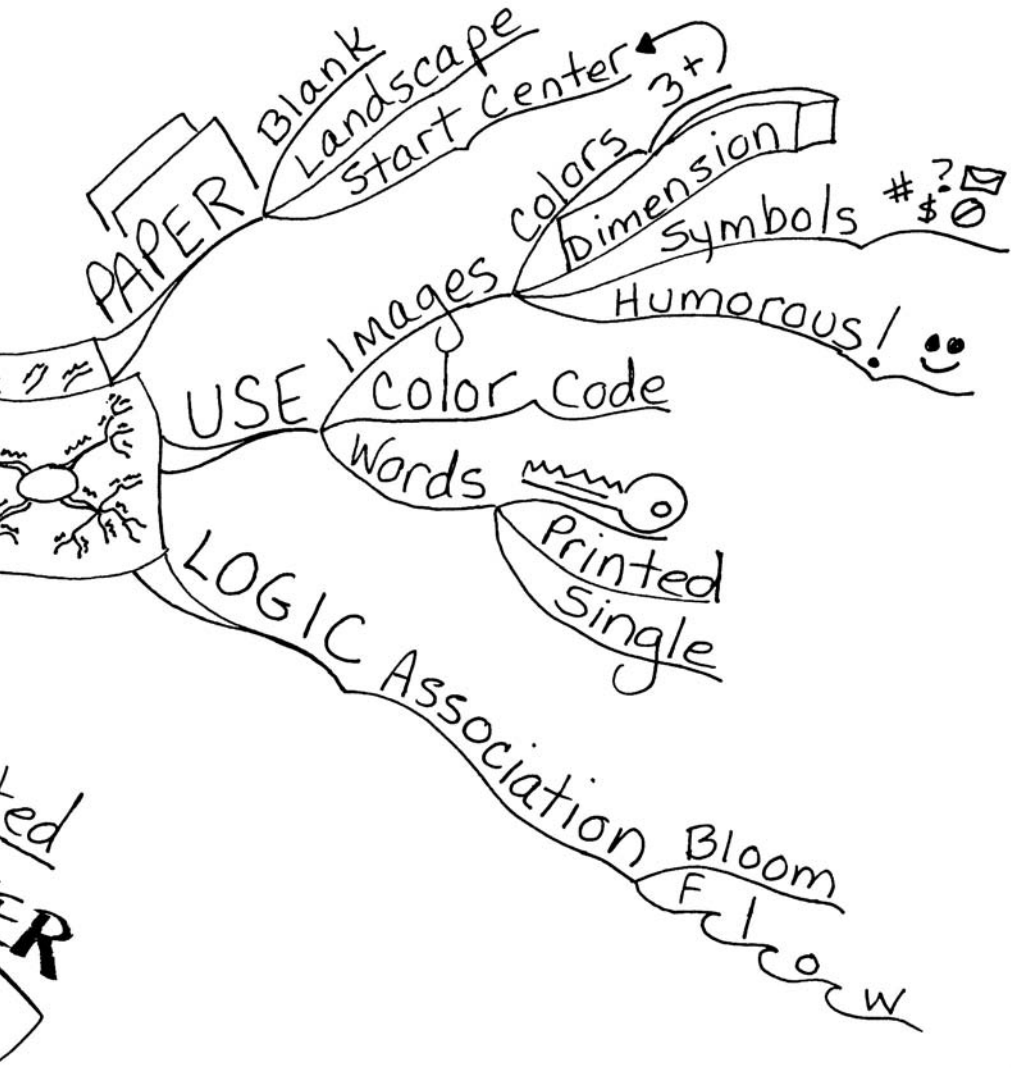 PAPER
Blank
Landscape
Start Center
USE
Images
Colors 3+
Dimension
Symbols # ? $
Humorous!
Color Code
Words
Printed
Single
LOGIC Association
Bloom
Flow
ted
ER